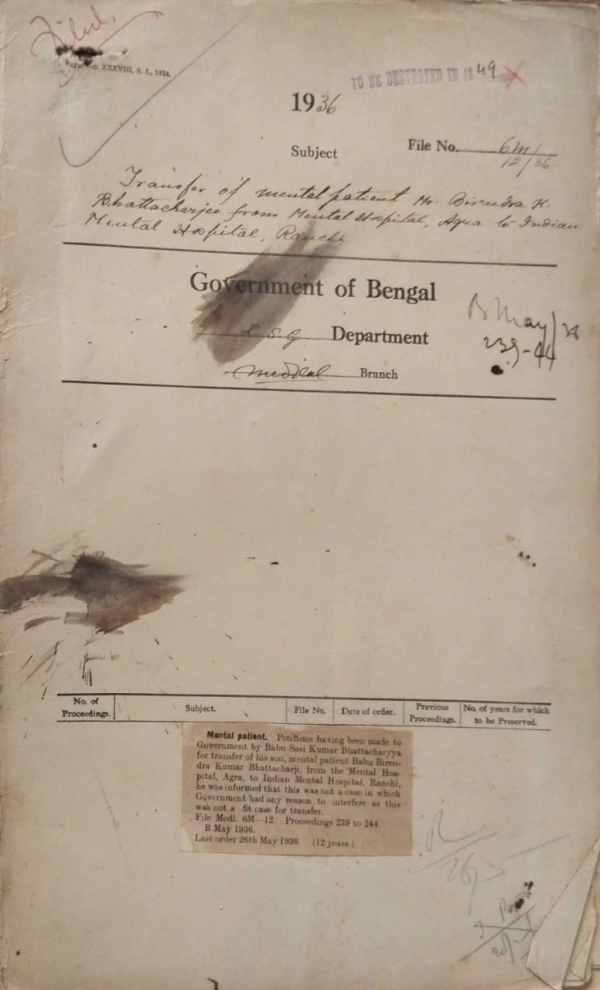 Filed.
No. XXXVIII, S. I., 1924.
TO BE DESTROYED IN 1949
1936
Subject
File No. 6M/
12/36
Transfer of mental patient Mr. Birendra K.
Bhattacharjee from Mental Hospital, Agra to Indian
Mental Hospital, Ranchi
Government of Bengal
L. S. G Department
Medical Branch
B May/36
239-44
No. of Proceedings.
Subject.
File No.
Date of order.
Previous Proceedings.
No. of years for which to be Preserved.
Mental patient. Petitions having been made to
Government by Babu Sasi Kumar Bhattacharyya
for transfer of his son, mental patient Babu Biren-
dra Kumar Bhattacharji, from the Mental Hos-
pital, Agra, to Indian Mental Hospital, Ranchi,
he was informed that this was not a case in which
Government had any reason to interfere as this
was not a fit case for transfer.
File Medl. 6M—12. Proceedings 239 to 244.
B May 1936.
Last order 26th May 1936. (12 years.)